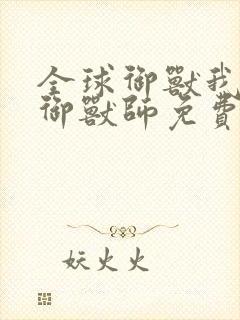 全球御獸我
御獸師免費
妖火火